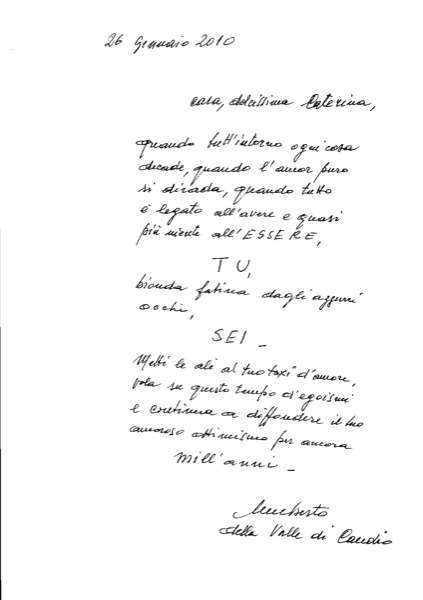 26 Gennaio 2010
cara, dolcissima Caterina,
quando tutt'intorno ogni cosa
decade, quando l'amor puro
si dirada, quando tutto
è legato all'avere e quasi
più niente all'ESSERE,
TU,
bionda fatina dagli azzurri
occhi,
SEI –
Metti le ali al tuo taxi d'amore,
vola su questo tempo d'egoismi
e continua a diffondere il tuo
amoroso ottimismo per ancora
mill'anni –
Umberto
della Valle di Caudio